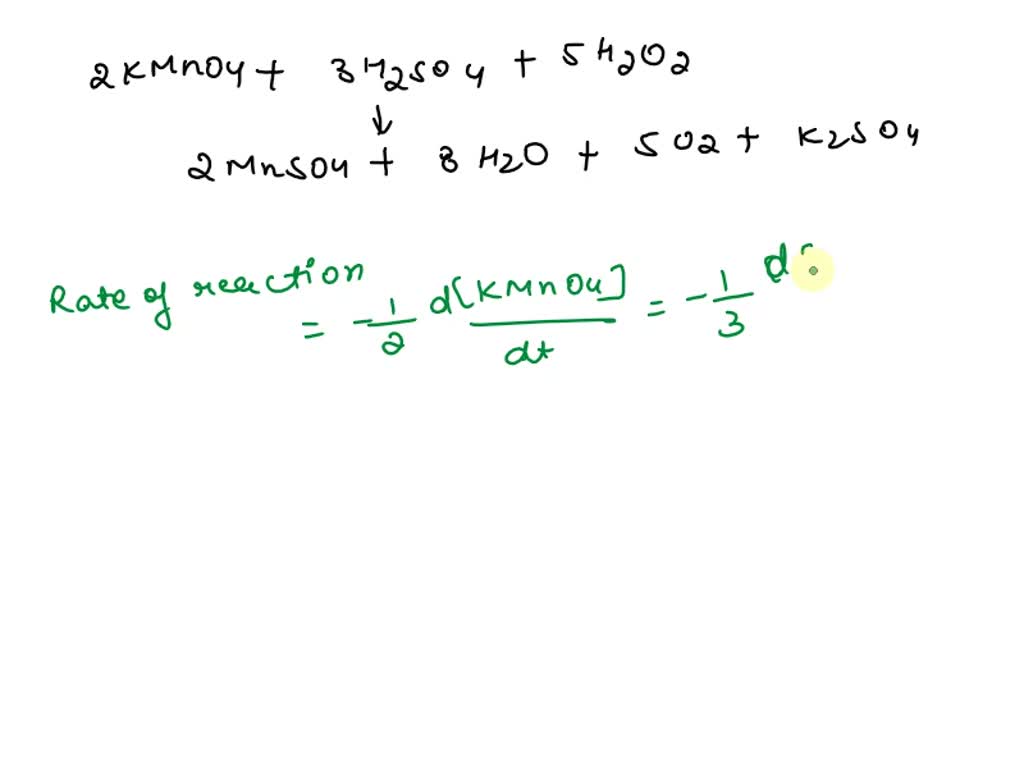 2KMnO4 + 3H2SO4 + 5H2O2
↓
2MnSO4 + 8H2O + 5O2 + K2SO4
Rate of reaction
= -1/2 d[KMnO4]/dt = -1/3 d[